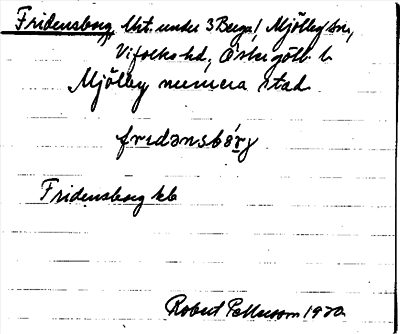 Fridensborg, lht. under 3 Berga, Mjölby sn,
Vifolka hd, Östergötl. l.
Mjölby numera stad
fridənsbór̨j
Fridensborg kb
Robert Pettersson 1920